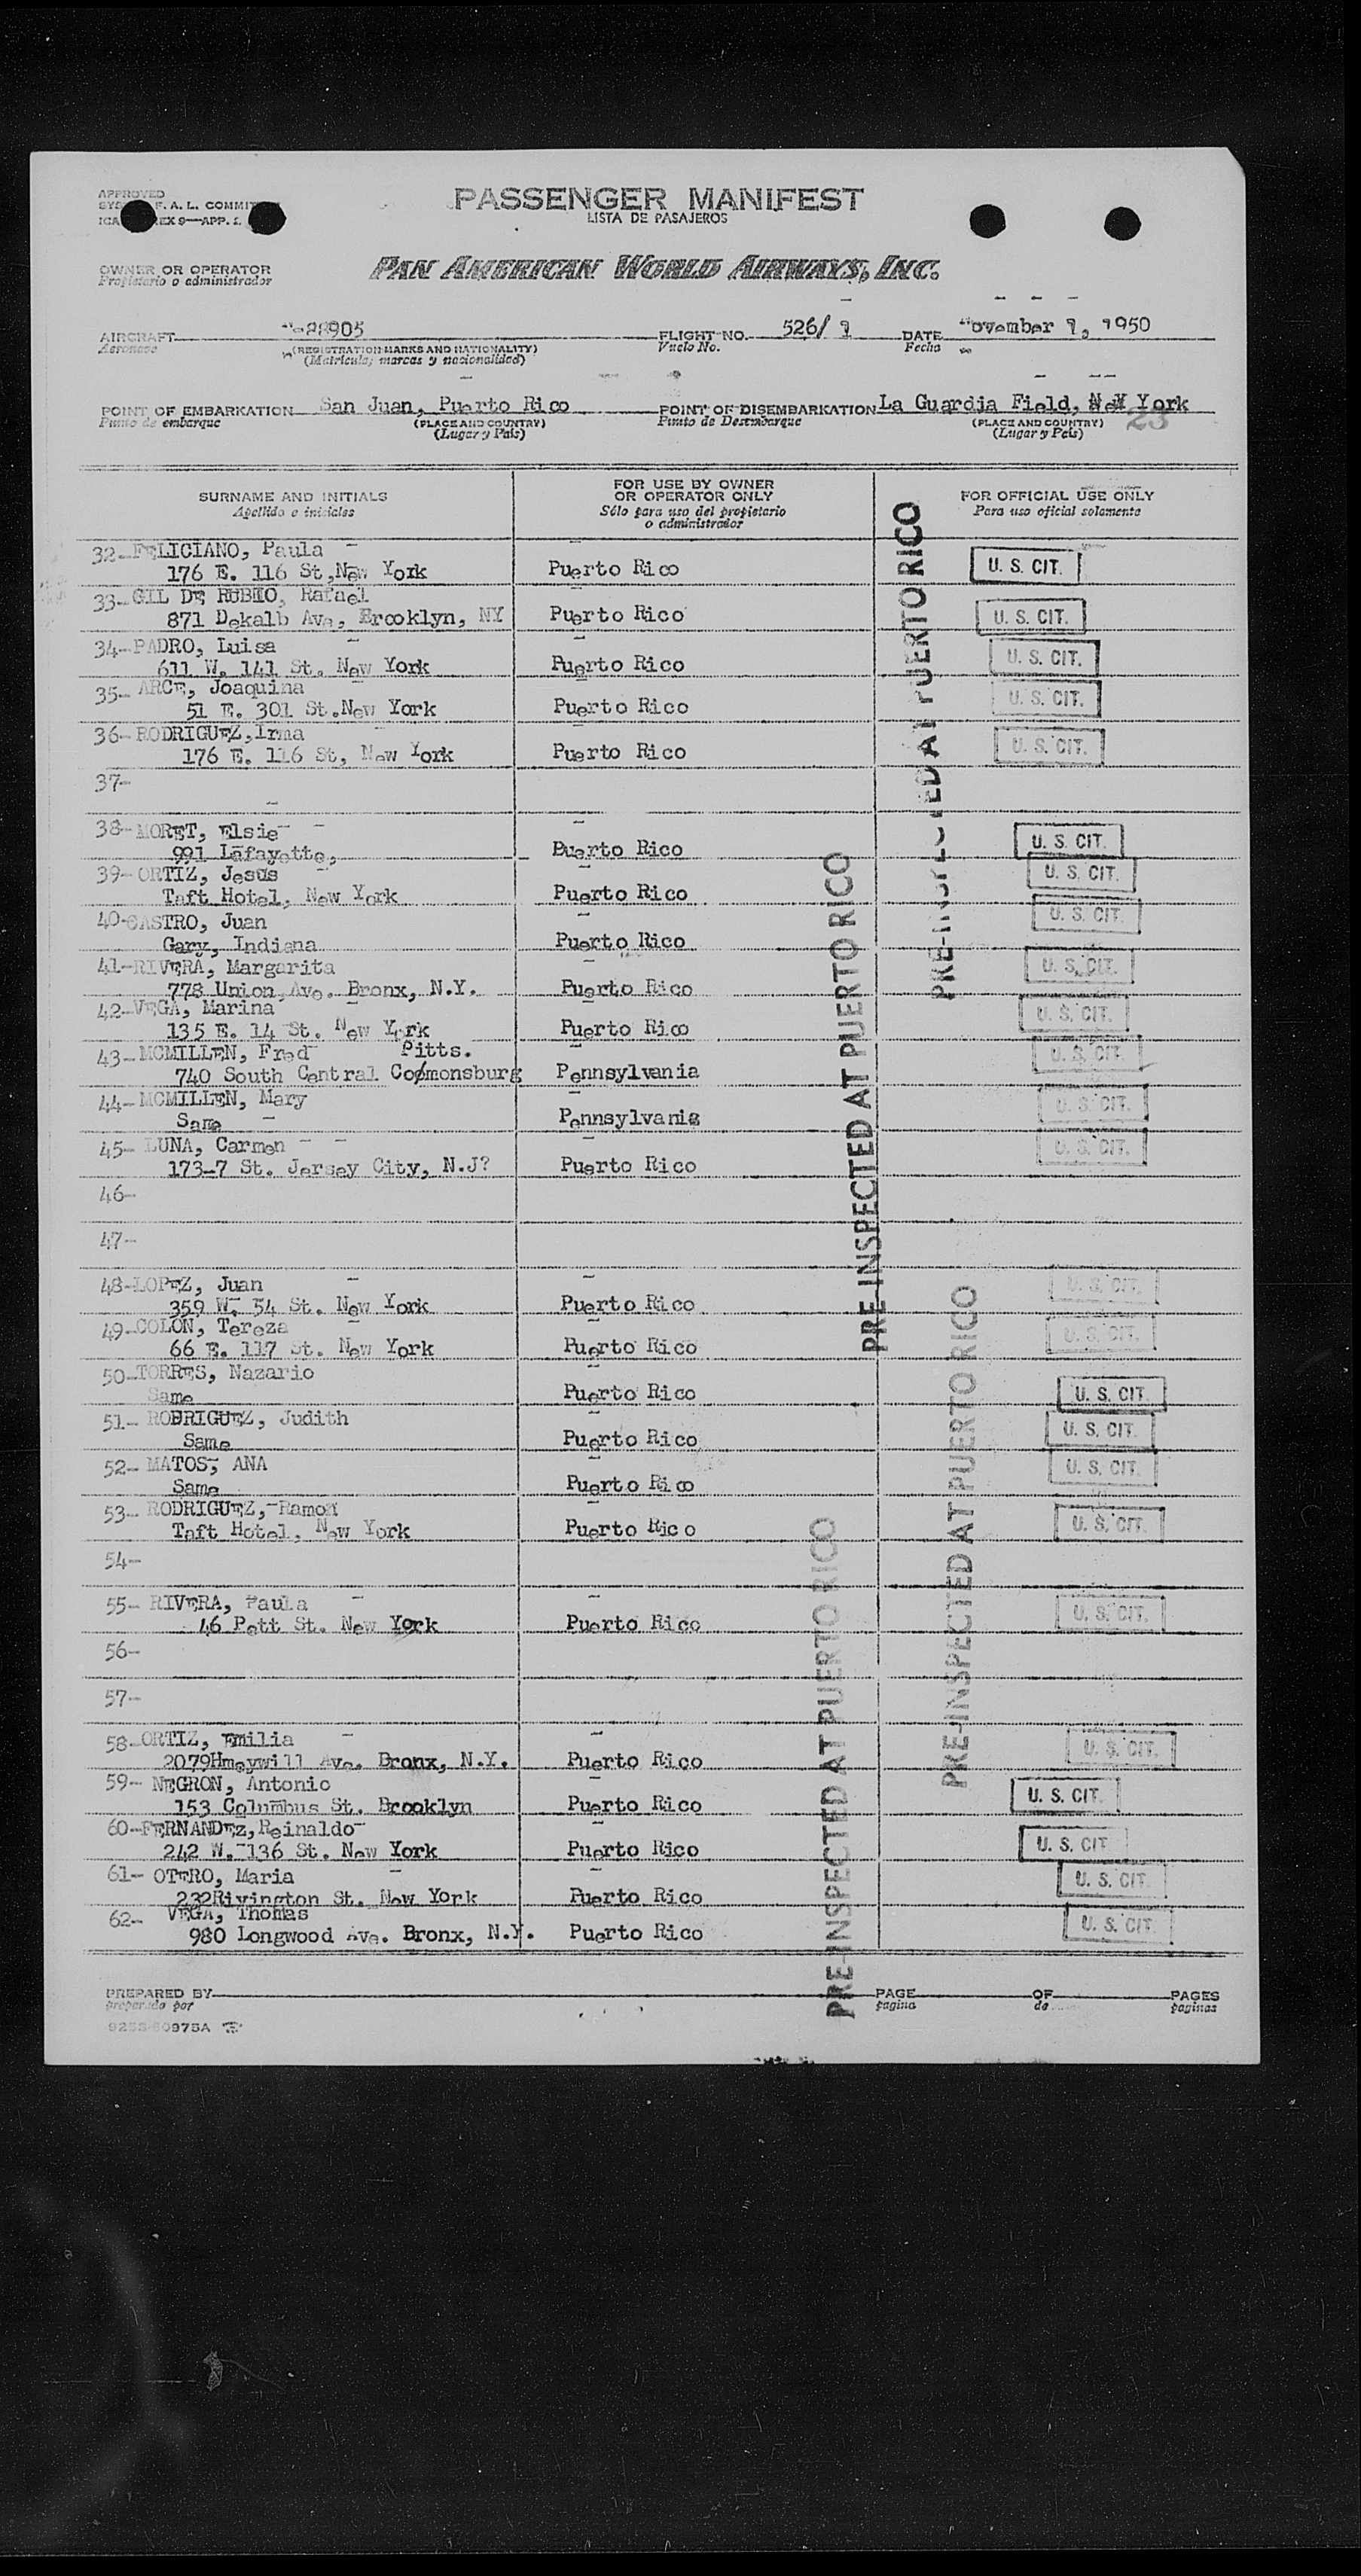 APPROVED
F. A. L. COMMIT
EX 9—APP. 2
PASSENGER MANIFEST
LISTA DE PASAJEROS
OWNER OR OPERATOR
Propietario o administrador
PAN AMERICAN WORLD AIRWAYS, INC.
AIRCRAFT -88905 FLIGHT NO. 526/ 1 DATE November 1, 1950
Aeronave (REGISTRATION MARKS AND NATIONALITY) Vuelo No. Fecha
(Matricula, marcas y nacionalidad)
POINT OF EMBARKATION San Juan, Puerto Rico POINT OF DISEMBARKATION La Guardia Field, New York
Punto de embarque (PLACE AND COUNTRY) Punto de Desembarque (PLACE AND COUNTRY) 23
(Lugar y Pais) (Lugar y Pais)
SURNAME AND INITIALS FOR USE BY OWNER OR OPERATOR ONLY FOR OFFICIAL USE ONLY
Apellido e iniciales Sólo para uso del propietario o administrador Para uso oficial solamente
32-FELICIANO, Paula
176 E. 116 St,New York Puerto Rico U. S. CIT.
33-GIL DE RUBIO, Rafael
871 Dekalb Ave, Brooklyn, NY Puerto Rico U. S. CIT.
34-PADRO, Luisa
611 W. 141 St. New York Puerto Rico U. S. CIT.
35- ARCE, Joaquina
51 E. 301 St.New York Puerto Rico U. S. CIT.
36-RODRIGUEZ,Irma
176 E. 116 St, New York Puerto Rico U. S. CIT.
37-
38-MORET, Elsie
991 Lafayette, Puerto Rico U. S. CIT.
39-ORTIZ, Jesus
Taft Hotel, New York Puerto Rico U. S. CIT.
40-CASTRO, Juan
Gary, Indiana Puerto Rico U. S. CIT.
41-RIVERA, Margarita
778 Union Ave. Bronx, N.Y. Puerto Rico U. S. CIT.
42-VEGA, Marina
135 E. 14 St. New York Puerto Rico U. S. CIT.
43-MCMILLEN, Fred Pitts.
740 South Central Co/monsburg Pennsylvania U. S. CIT.
44-MCMILLEN, Mary
Same Pennsylvania U. S. CIT.
45- LUNA, Carmen
173-7 St. Jersey City, N.J? Puerto Rico U. S. CIT.
46-
47-
48-LOPEZ, Juan
359 W. 54 St. New York Puerto Rico U. S. CIT.
49-COLON, Tereza
66 E. 117 St. New York Puerto Rico U. S. CIT.
50-TORRES, Nazario
Same Puerto Rico U. S. CIT.
51- RODRIGUEZ, Judith
Same Puerto Rico U. S. CIT.
52- MATOS, ANA
Same Puerto Rico U. S. CIT.
53- RODRIGUEZ,-Ramon
Taft Hotel, New York Puerto Rico U. S. CIT.
54-
55- RIVERA, Paula
46 Pett St. New York Puerto Rico U. S. CIT.
56-
57-
58-ORTIZ, Emilia
2079Hmeywill Ave. Bronx, N.Y. Puerto Rico U. S. CIT.
59- NEGRON, Antonio
153 Columbus St. Brooklyn Puerto Rico U. S. CIT.
60-FERNANDEZ,Reinaldo
242 W. 136 St. New York Puerto Rico U. S. CIT.
61- OTERO, Maria
232Rivington St. New York Puerto Rico U. S. CIT.
62- VEGA, Thomas
980 Longwood Ave. Bronx, N.Y. Puerto Rico U. S. CIT.
PRE-INSPECTED AT PUERTO RICO
PRE-INSPECTED AT PUERTO RICO
PRE-INSPECTED AT PUERTO RICO
PRE-INSPECTED AT PUERTO RICO
PREPARED BY PAGE OF PAGES
preparado por pagina de paginas